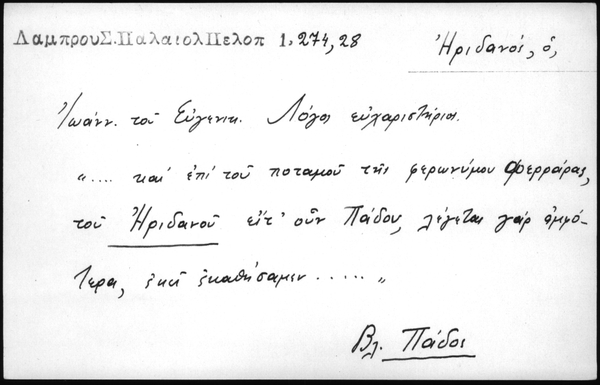 ΛαμπρουΣ.ΠαλαιολΠελοπ 1,274,28
Ἠριδανός, ὁ,
Ἰωάνν. τοῦ Εὐγενικ. Λόγος εὐχαριστήριος.
".... καί ἐπί τοῦ ποταμοῦ τῆς φερωνύμου Φερράρας,
τοῦ Ἠριδανοῦ εἴτ' οὖν Πάδου, λέγεται γάρ ἀμφό-
τερα, ἐκεῖ ἐκαθίσαμεν ...... "
Βλ. Πάδος